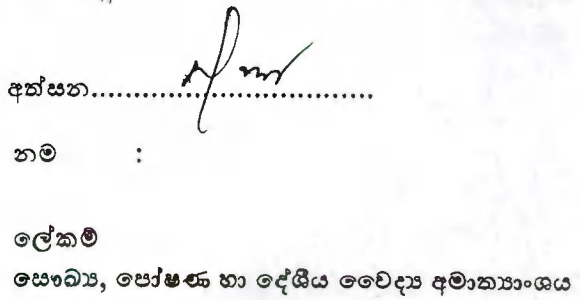 අත්සන..................................
නම :
ලේකම්
සෞඛ්‍ය, පෝෂණ හා දේශීය වෛද්‍ය අමාත්‍යාංශය